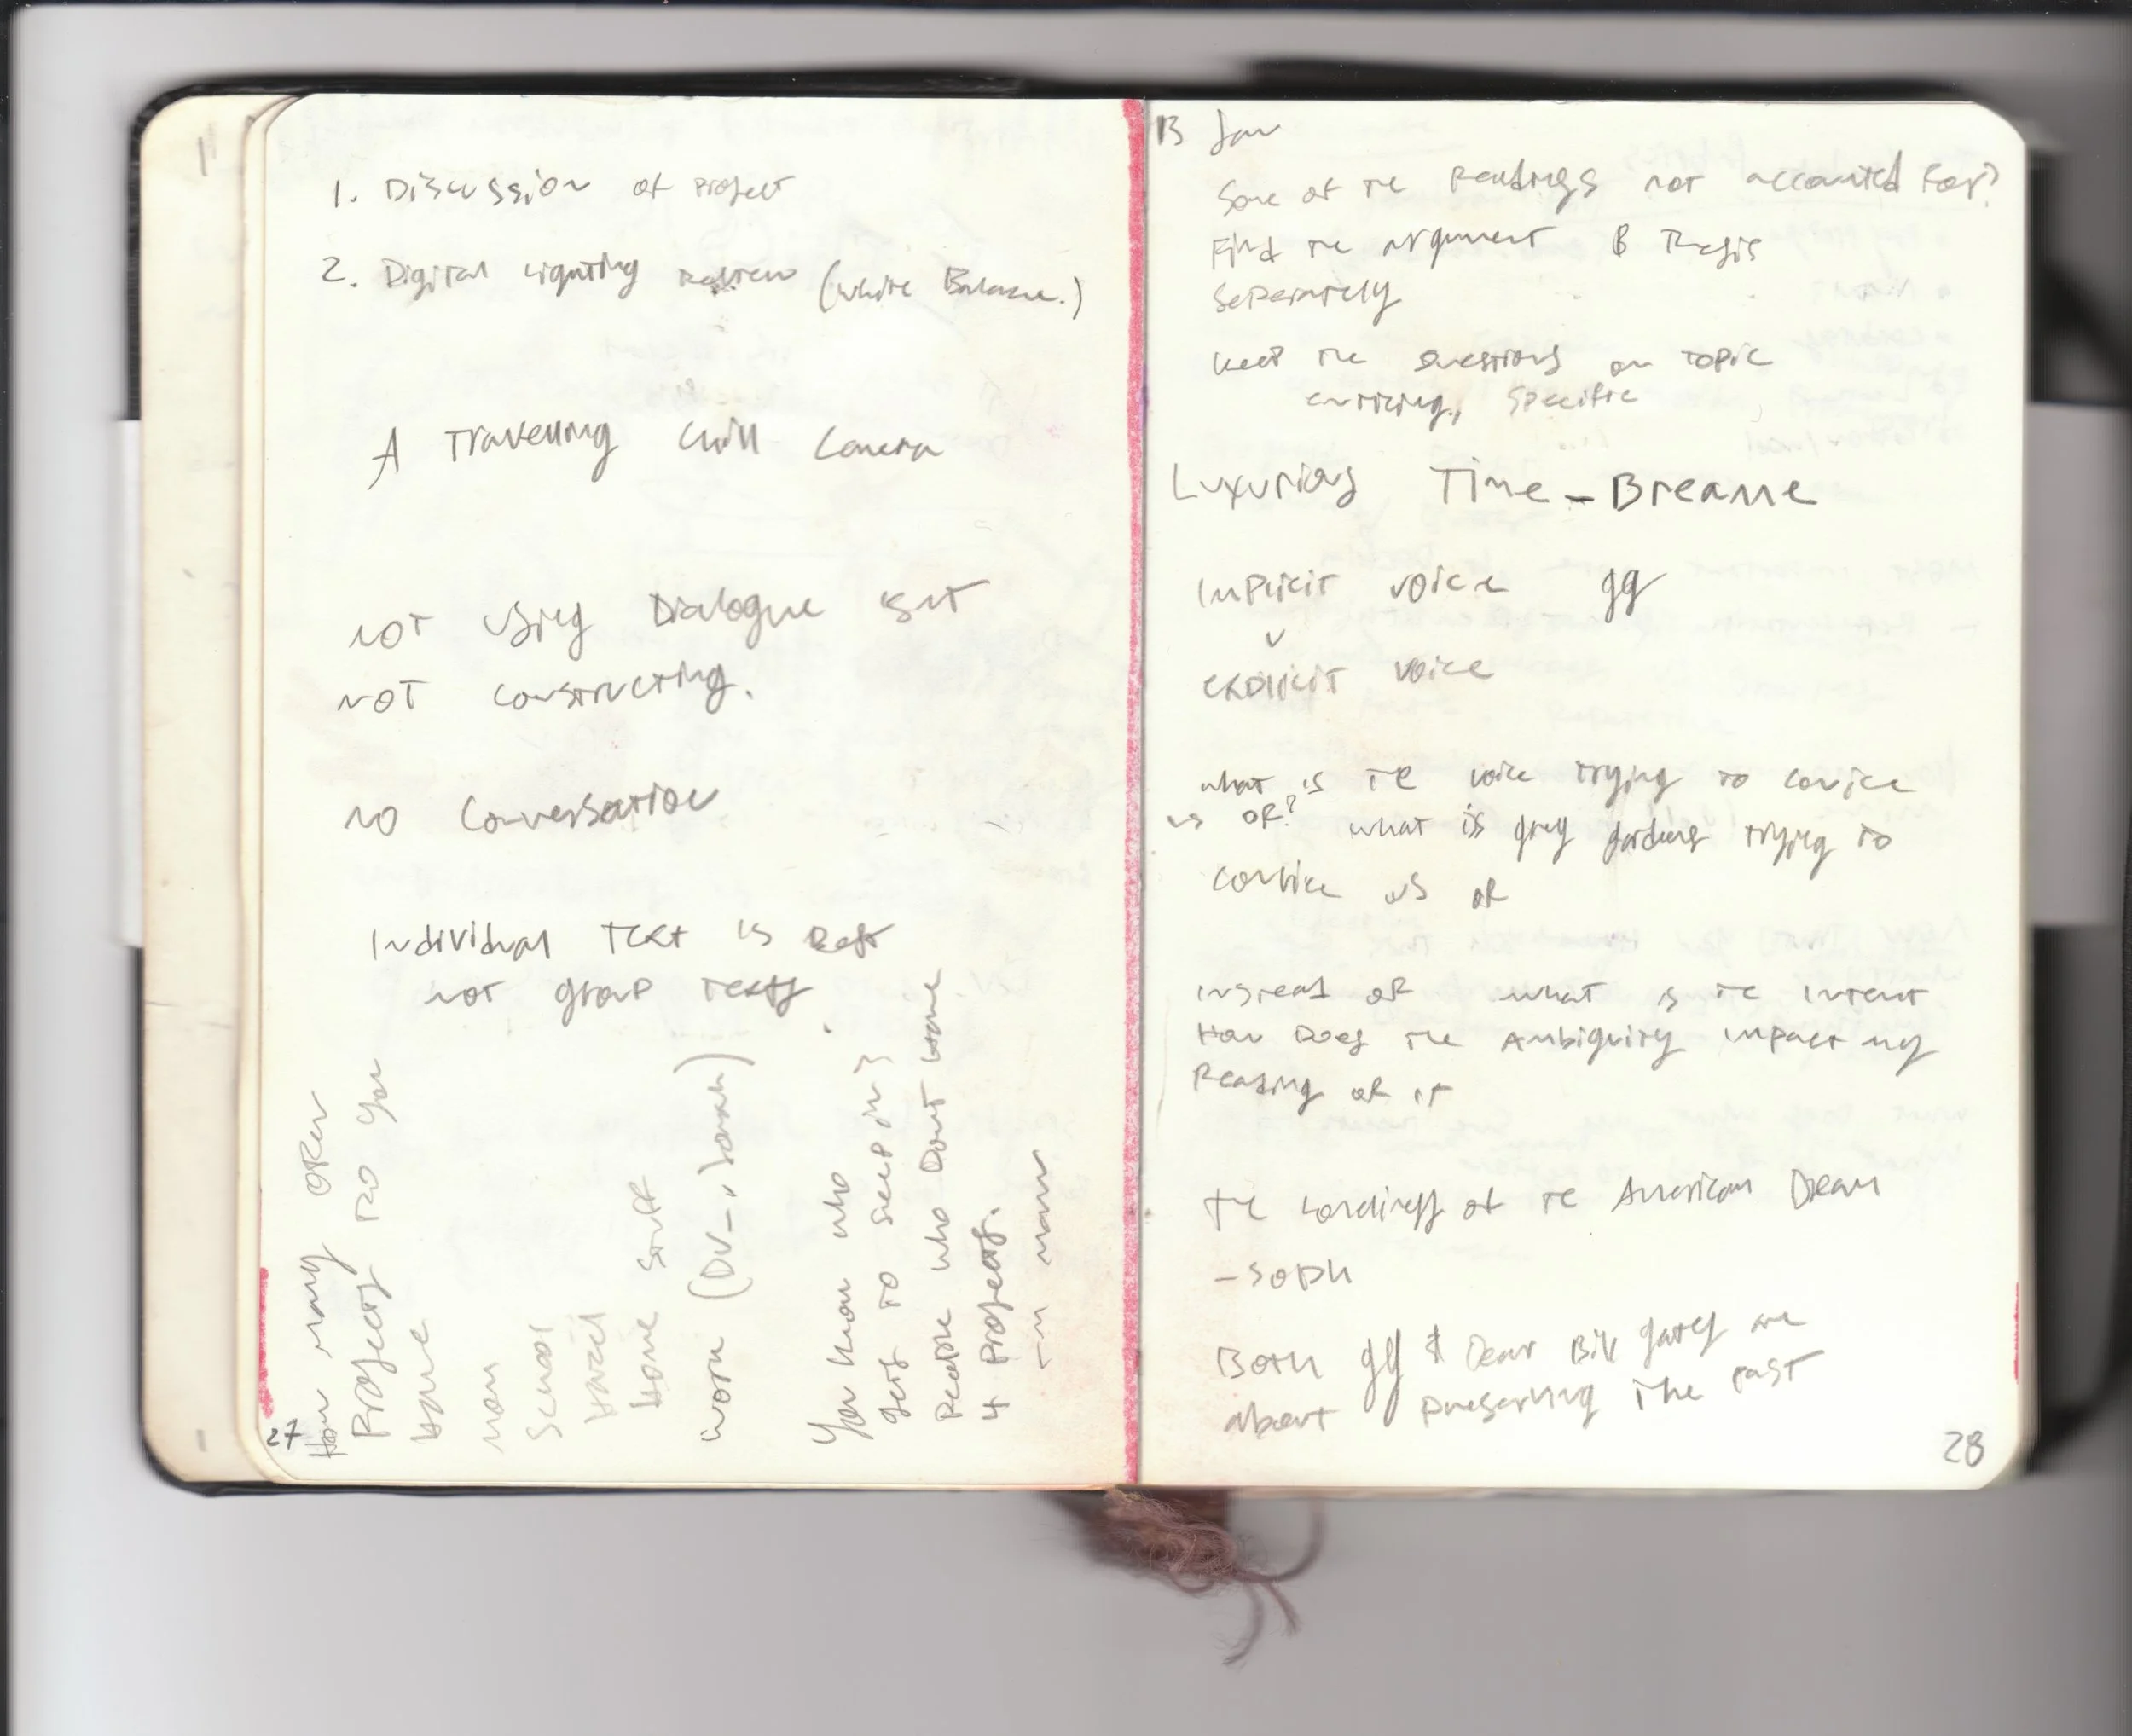 1. Discussion of Project
2. Digital Lighting Review (white Balance.)
A Travelling Chill Camera
not using Dialogue but
not constructing.
no Conversation
Individual Text is Best
not group texts.
How many open
Projects Do you
have
mom
School
Hazel
Home stuff
work (DV-, Jonah)
You know who
gets to sleep in?
People who Dont have
4 Projects.
- m mom
27
13 Jan
Some of the Readings not accounted for?
Find the argument & Thesis
Seperately
keep the questions on Topic
enticing, Specific
Luxurious Time - Breanne
Implicit voice gg
v
explicit voice
what is te voice trying to convice
us of? what is grey gardens trying to
convice us of
instead of what is te intent
How Does the Ambiguity impact my
Reading of it
the Loneliness of te American Dream
- Soph
Both gg & Dear Bill gates are
about preserving The past
28